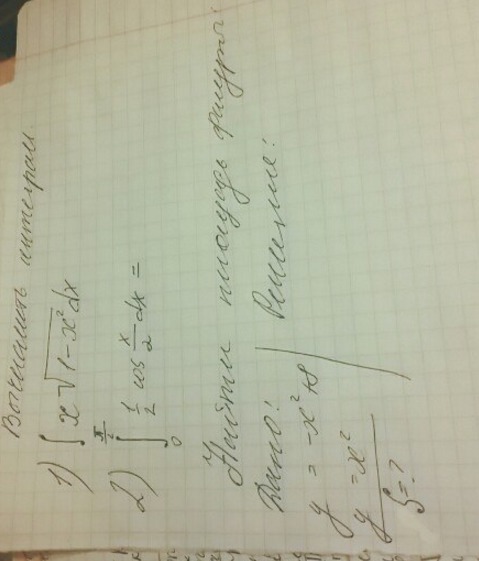 Вычислить интеграл
1) ∫ x √(1-x²) dx
2) ∫₀^(π/2) 1/2 cos x/2 dx =
Найти площадь фигуры:
Дано: Решение:
y = -x² + 8
y = x²
S = ?